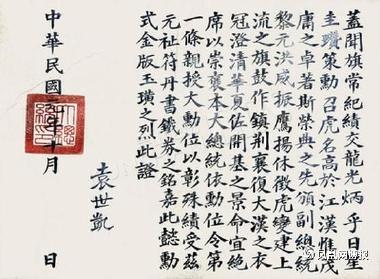 蓋聞旗常紀績交龍光炳乎日星
圭瓚策勳召虎名高於江漢惟茂
庸之卓著斯榮典之先頒副總統
黎元洪威振鷹揚休徵虎變建上
流之旗鼓作鎮荆襄復大漢之衣
冠澄清華夏佐開基之景命宜絶
席以崇褒本大總統依勳位令第
一條親授大勳位以彰殊績受茲
元祉符丹書鐵券之銘嘉此懿勳
式金版玉璜之烈此證
袁世凱
中華民國年十月